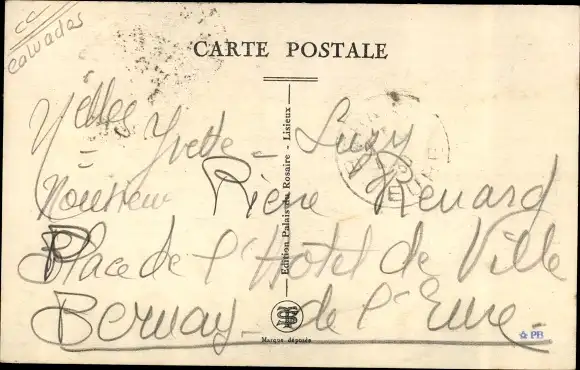 CC
Calvados
CARTE POSTALE
Melles Yvette - Suzy
Monsieur Pière Renard
Place de l'Hotel de Ville
Bernay de l'Eure
Edition Palais du Rosaire - Lisieux
Marque déposée
PB